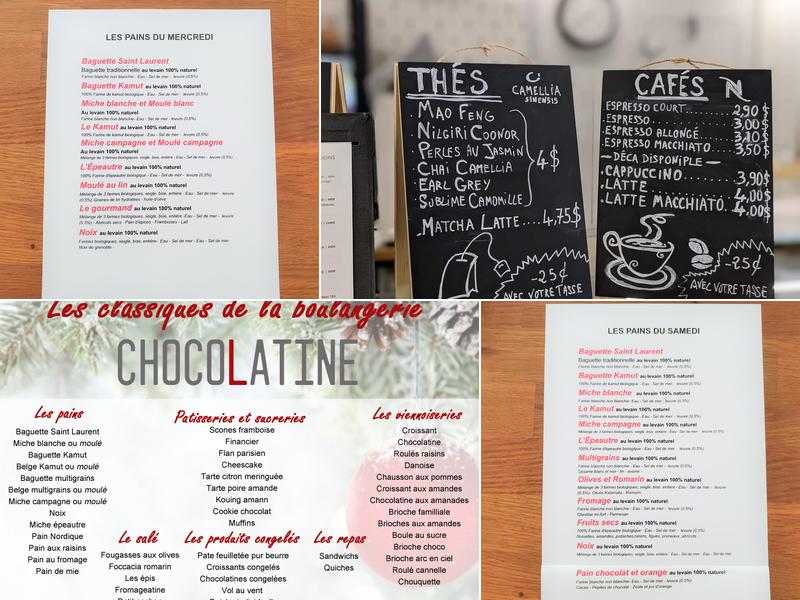 LES PAINS DU MERCREDI
Baguette Saint Laurent
Baguette traditionnelle au levain 100% naturel
Farine blanche non blanche - Eau - Sel de mer - levure (0,5%)
Baguette Kamut au levain 100% naturel
100% Farine de kamut biologique - Eau - Sel de mer - levure (0,5%)
Miche blanche et Moulé blanc
Au levain 100% naturel
Farine blanche non blanche - Eau - Sel de mer - levure (0,5%)
Le Kamut au levain 100% naturel
100% Farine de kamut biologique - Eau - Sel de mer - levure (0,5%)
Miche campagne et Moulé campagne
Au levain 100% naturel
Mélange de 3 farines biologiques, seigle, boe, entière - Eau - Sel de mer - levure (0,5%)
L'Épeautre au levain 100% naturel
100% Farine d'épeautre biologique - Eau - Sel de mer - levure (0,5%)
Moulé au lin au levain 100% naturel
Mélange de 3 farines biologiques, seigle, boe, entière - Eau - Sel de mer - levure
(0,5%) Graines de lin hydratées - huile d'olive
Le gourmand au levain 100% naturel
Mélange de 3 farines biologiques, seigle, boe, entière - Eau - Sel de mer - levure
(0,5%) - Abricots secs - Pain d'épices - Framboises - Lait
Noix au levain 100% naturel
Farines biologiques, seigle, boe, entière - Eau - Sel de mer - Eau - Sel de mer
Noix de grenoble
THÉS
CAMELLIA
SINENSIS
. MAO FENG
. NILGIRI COONOR
. PERLES AU JASMIN
. CHAI CAMELLIA
. EARL GREY
. SUBLIME CAMOMILLE
4$
. MATCHA LATTE....4,75$
-25¢
AVEC VOTRE TASSE
CAFÉS N
ESPRESSO COURT 2,90$
ESPRESSO 3,00$
ESPRESSO ALLONGÉ 3,10$
ESPRESSO MACCHIATO 3,50$
— DÉCA DISPONIPLE —
. CAPPUCCINO 3,90$
. LATTE 4,00$
. LATTE MACCHIATO. 4,00$
-25¢
AVEC VOTRE TASSE
Les classiques de la boulangerie
CHOCOLATINE
Les pains
Baguette Saint Laurent
Miche blanche ou moulé
Baguette Kamut
Belge Kamut ou moulé
Baguette multigrains
Belge multigrains ou moulé
Miche campagne ou moulé
Noix
Miche épeautre
Pain Nordique
Pain aux raisins
Pain au fromage
Pain de mie
Patisseries et sucreries
Scones framboise
Financier
Flan parisien
Cheescake
Tarte citron meringuée
Tarte poire amande
Kouing amann
Cookie chocolat
Muffins
Les viennoiseries
Croissant
Chocolatine
Roulés raisins
Danoise
Chausson aux pommes
Croissant aux amandes
Chocolatine aux amanades
Brioche familliale
Brioches aux amandes
Boule au sucre
Brioche choco
Brioche arc en ciel
Roulé cannelle
Chouquette
Le salé
Fougasses aux olives
Foccacia romarin
Les épis
Fromageatine
Les produits congelés
Pate feuilletée pur beurre
Croissants congelés
Chocolatines congelées
Vol au vent
Les repas
Sandwichs
Quiches
LES PAINS DU SAMEDI
Baguette Saint Laurent
Baguette traditionnelle au levain 100% naturel
Farine blanche non blanche - Eau - Sel de mer - levure (0,5%)
Baguette Kamut au levain 100% naturel
100% Farine de kamut biologique - Eau - Sel de mer - levure (0,5%)
Miche blanche au levain 100% naturel
Farine blanche non blanche - Eau - Sel de mer - levure (0,5%)
Le Kamut au levain 100% naturel
100% Farine de kamut biologique - Eau - Sel de mer - levure (0,5%)
Miche campagne au levain 100% naturel
Mélange de 3 farines biologiques, seigle, boe, entière - Eau - Sel de mer - levure (0,5%)
L'Épeautre au levain 100% naturel
100% Farine d'épeautre biologique - Eau - Sel de mer - levure (0,5%)
Multigrains au levain 100% naturel
Farine blanche non blanche - Eau - Sel de mer - levure (0,5%)
Olives et Romarin au levain 100% naturel
Mélange de 3 farines biologiques, seigle, boe, entière - Eau - Sel de mer - levure
(0,5%) Olives Kalamata - Romarin
Fromage au levain 100% naturel
Farine blanche non blanche - Eau - Sel de mer - levure (0,5%)
Cheddar mi-fort - Parmesan
Fruits secs au levain 100% naturel
Farine blanche non blanche - Eau - Sel de mer - levure (0,5%)
Noisettes, amandes, pistaches, raisins, figues, pruneaux, abricots
Noix au levain 100% naturel
Mélange de 3 farines biologiques, seigle, boe, entière - Eau - Sel de mer - levure (0,5%)
Pain chocolat et orange au levain 100% naturel
Farine blanche non blanche - Eau - Sel de mer - levure (0,5%)
Cacao - Pépites de chocolat - Zeste et jus d'orange